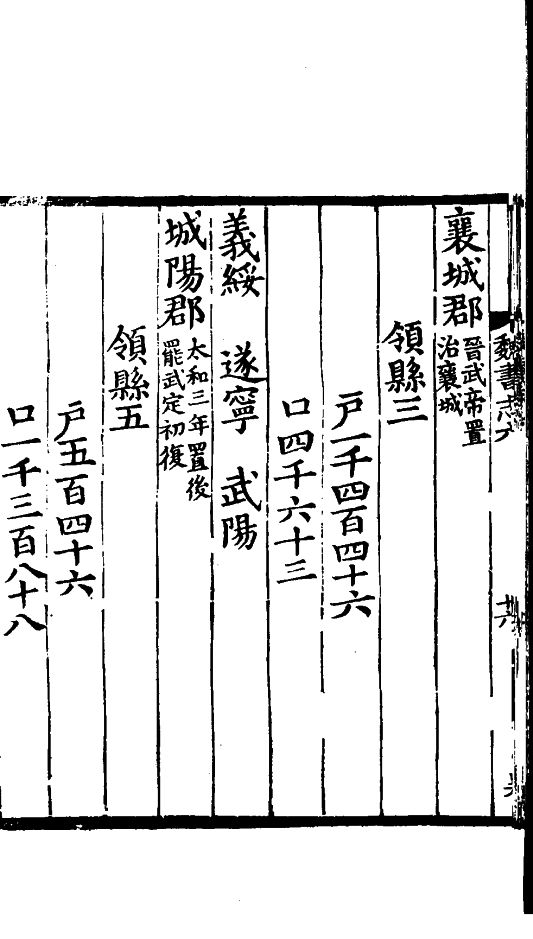 魏書志六
襄城郡晉武帝置治襄城
領縣三
戶一千四百四十六
口四千六十三
義綏 遂寧 武陽
城陽郡太和三年置後罷武定初復
領縣五
戶五百四十六
口一千三百八十八